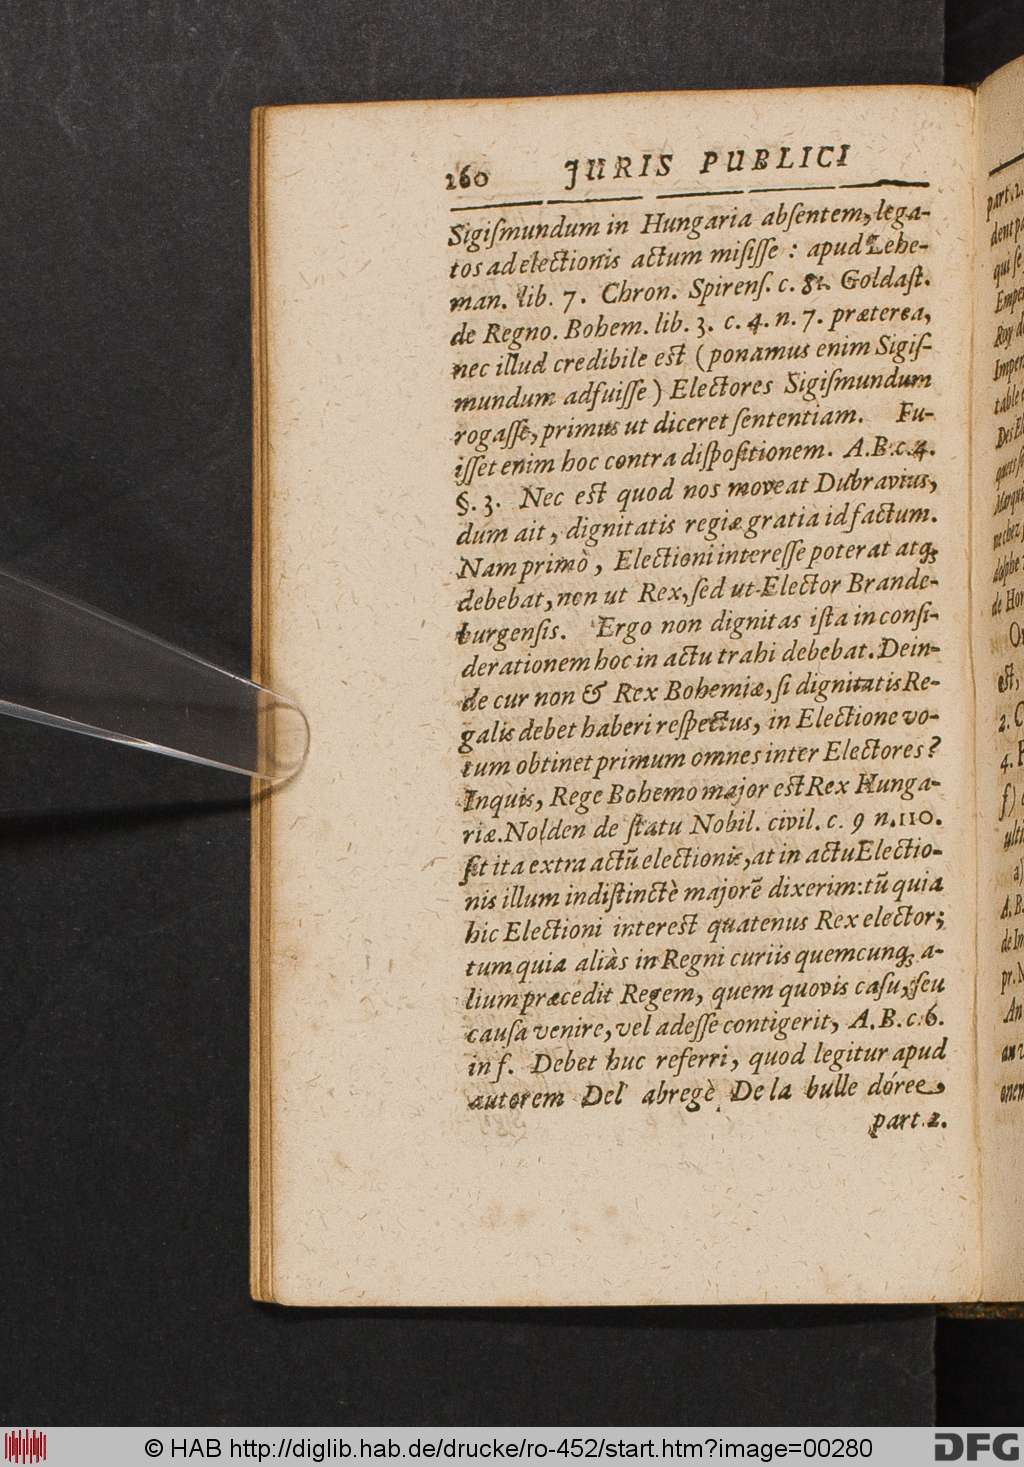 260 JURIS PUBLICI
Sigiſmundum in Hungaria abſentem, lega-
tos ad electionis actum miſiſſe : apud Lehe-
man. lib. 7. Chron. Spirenſ. c. 81. Goldaſt.
de Regno. Bohem. lib. 3. c. 4. n. 7. præterea,
nec illud credibile est (ponamus enim Sigiſ-
mundum adfuiſſe) Electores Sigiſmundum
rogaſſe, primus ut diceret ſententiam. Fu-
iſſet enim hoc contra diſpoſitionem. A.B.c.4.
§. 3. Nec est quod nos moveat Dubravius,
dum ait, dignitatis regiæ gratia id factum.
Nam primò, Electioni intereſſe poterat atq́;
debebat, non ut Rex, ſed ut Elector Brande-
burgenſis. Ergo non dignitas iſta in conſi-
derationem hoc in actu trahi debebat. Dein-
de cur non & Rex Bohemiæ, ſi dignitatis Re-
galis debet haberi reſpectus, in Electione vo-
tum obtinet primum omnes inter Electores?
Inquis, Rege Bohemo major est Rex Hunga-
riæ. Nolden de ſtatu Nobil. civil. c. 9 n. 110.
ſit ita extra actũ electionis, at in actu Electio-
nis illum indiſtinctè majorẽ dixerim: tũ quia
hic Electioni interest quatenus Rex elector;
tum quia aliàs in Regni curiis quemcunq́; a-
lium præcedit Regem, quem quovis caſu, ſeu
cauſa venire, vel adeſſe contigerit, A. B. c. 6.
in f. Debet huc referri, quod legitur apud
autorem Del' abregè De la bulle dóree,
part. 2.
part. 2.
dent pa
qui ſe
Emper
Roy de
Imper
table
Des El
Marqui
ne chez
de Hon
est,
2.
4.
f)
ulti
a)
A. B.
de In
pr.
An
onem
© HAB http://diglib.hab.de/drucke/ro-452/start.htm?image=00280
DFG